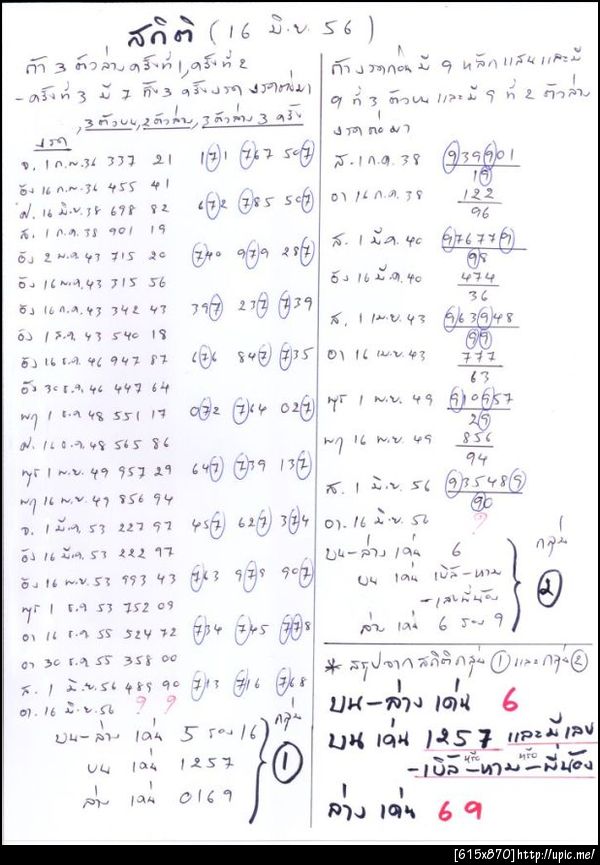 สถิติ (16 มิ.ย. 56)
ถ้า 3 ตัวล่าง ครั้งที่ 1, ครั้งที่ 2
- ครั้งที่ 3 มี 7 ทั้ง 3 ครั้ง งวดต่อมา
, 3 ตัวบน, 2 ตัวล่าง, 3 ตัวล่าง 3 ครั้ง
งวด
จ. 1 ก.พ. 36 337 21 171 767 507
อัง 16 ก.พ. 36 455 41
ศ. 16 มิ.ย. 38 698 82 672 785 507
ส. 1 ก.ค. 38 901 19
อัง 2 พ.ค. 43 715 20 740 979 287
อัง 16 พ.ค. 43 315 56
อา 16 ก.ค. 43 342 43 397 237 739
อัง 1 ส.ค. 43 540 18
อัง 16 ธ.ค. 46 947 87 676 847 735
อัง 30 ธ.ค. 46 447 64
พฤ 1 ธ.ค. 48 551 17 072 764 027
ศ. 16 ธ.ค. 48 565 86
พุธ 1 พ.ย. 49 957 29 647 739 137
พฤ 16 พ.ย. 49 856 94
จ. 1 มี.ค. 53 227 97 457 627 374
อัง 16 มี.ค. 53 222 97
อัง 16 พ.ย. 53 993 43 763 979 907
พุธ 1 ธ.ค. 53 752 09
อา 16 ธ.ค. 55 524 72 734 745 778
อา 30 ธ.ค. 55 358 00
ส. 1 มิ.ย. 56 489 90 713 716 768
อา. 16 มิ.ย. 56 ? ?
บน-ล่าง เด่น 5 รอง 16
บน เด่น 1257
ล่าง เด่น 0169
กลุ่ม
1
ถ้างวดก่อนมี 9 หลักแสน และมี
9 ที่ 3 ตัวบน และมี 9 ที่ 2 ตัวล่าง
งวดต่อมา
ส. 1 ก.ค. 38 939901
19
อา 16 ก.ค. 38 122
96
ส. 1 มี.ค. 40 976779
98
อัง 16 มี.ค. 40 474
36
ส. 1 เม.ย. 43 963948
99
อา 16 เม.ย. 43 777
63
พุธ 1 พ.ย. 49 910957
29
พฤ 16 พ.ย. 49 856
94
ส. 1 มิ.ย. 56 935489
90
อา. 16 มิ.ย. 56 ?
บน-ล่าง เด่น 6
บน เด่น เบิ้ล-หาม
-เลขพี่น้อง
ล่าง เด่น 6 รอง 9
กลุ่ม
2
* สรุปจากสถิติกลุ่ม 1 และกลุ่ม 2
บน-ล่าง เด่น 6
บน เด่น 1257 และมีเลข
-เบิ้ล หรือ -หาม หรือ -พี่น้อง
ล่าง เด่น 69
[615x870]http://upic.me/